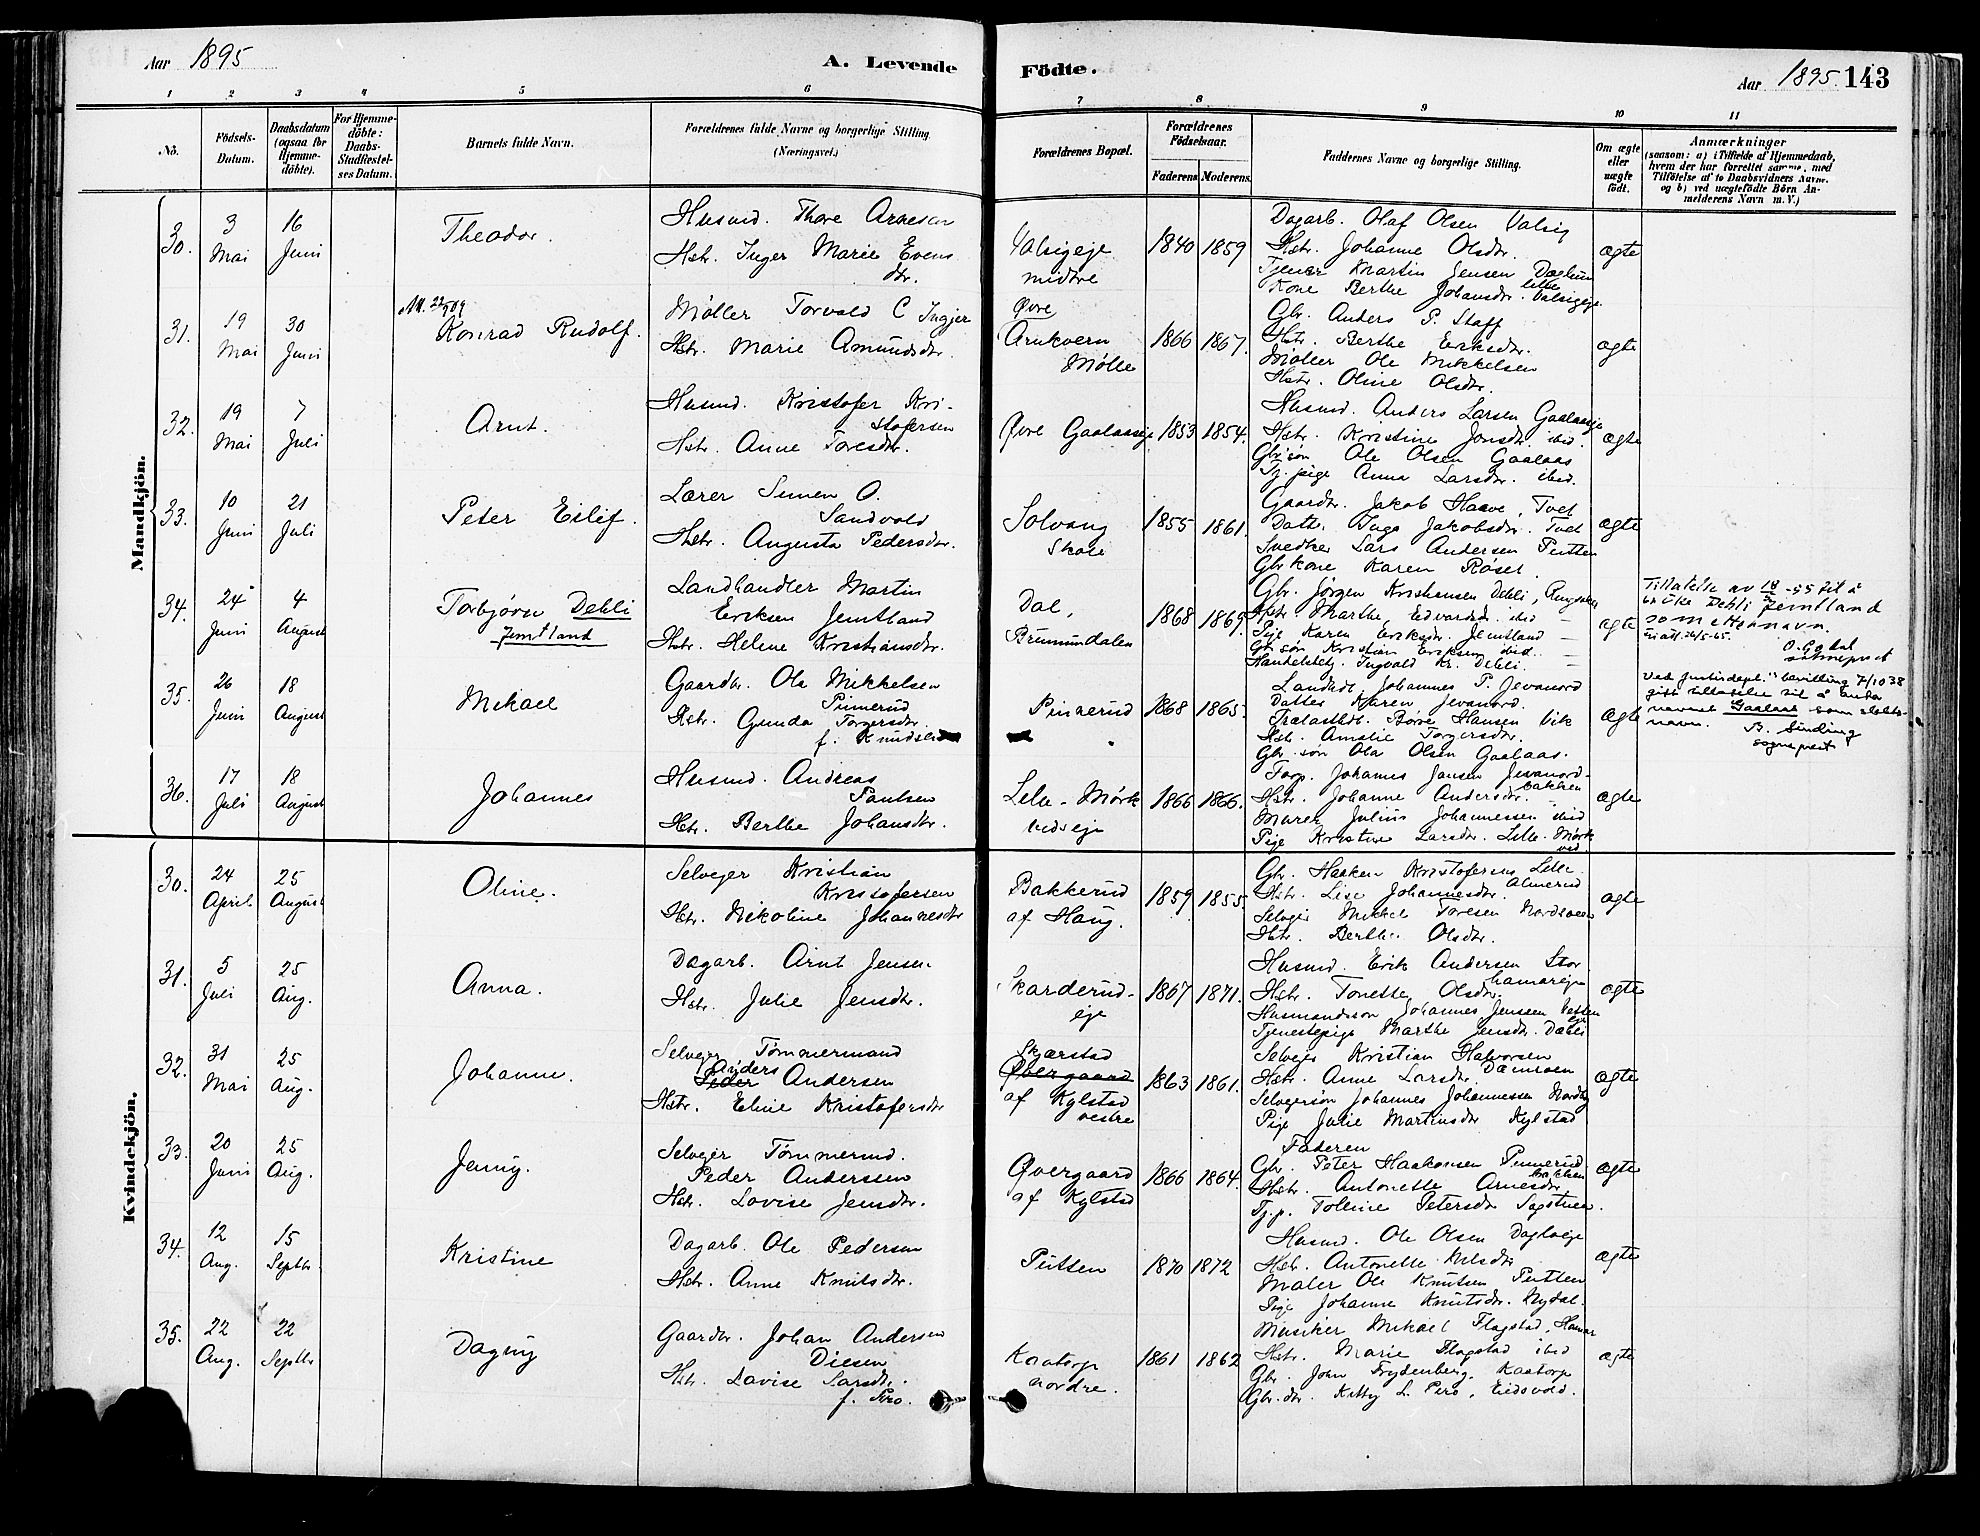 Aar 1895
A. Levende Födte.
Aar 1895. 143
1 2 3 4 5 6 7 8 9 10 11
No.
Födsels-Datum.
Daabsdatum (ogsaa for Hjemmedöbte).
For Hjemmedöbte: Daabs-Stadfæstelses Datum.
Barnets fulde Navn.
Forældrenes fulde Navne og borgerlige Stilling. (Næringsvei.)
Forældrenes Bopæl.
Forældrenes Födselsaar.
Faderens Moderens.
Faddernes Navne og borgerlige Stilling.
Om ægte eller uægte født.
Anmærkninger
(saasom: a) i Tilfælde af Hjemmedaab, hvem der har forrettet samme, med Tilföielse af to Daabsvidners Navne, og b) ved uægtefödte Börn Anmelderens Navn m. V.)
Mandkjön.
30. 3 Mai 16 Juni
Theodor.
Husmd. Thore Arnesen
Hstr. Inger Marie Evensdtr.
Valsigeje midtre
1840 1859
Dagarb. Olaf Olsen Valsig
Hstr. Johanne Olsdtr.
Tjener Martin Jensen Dælhun
Kone Berthe Johansdtr. lille Valsigeje
ægte
31. 19 Mai 30 Juni
Konrad Rudolf.
Møller Torvald C Ingjer
Hstr. Marie Amundsdtr.
Øvre Arnkvern Mølle
1866 1867.
Gbr. Anders P. Staff
Hstr. Berthe Eriksdtr.
Møller Ole Mikkelsen
Hstr. Oline Olsdtr.
ægte
32. 19 Mai 7 Juli
Arnt.
Husmd. Kristofer Kristofersen
Hstr. Anne Toresdtr.
Øvre Gaalaaseje
1853 1854.
Husmd. Anders Larsen Gaalaaseje
Hstr. Kristine Jonsdtr. ibid
Gbr søn Ole Olsen Gaalaas
Tj. pige Anna Larsdtr. ibid.
ægte
33. 10 Juni 21 Juli
Peter Eilif.
Lærer Simen O. Sandvold
Hstr. Augusta Pedersdtr.
Solvang Skole
1855 1861.
Gaardbr. Jakob Haave, Tvet
Datter Inga Jakobsdtr. Tvet
Snedker Lars Andersen Pütten
Gbr kone Karen Roset
ægte
34. 24 Juni 4 August
Torbjørn Dehli Jemtland
Landhandler Martin Eriksen Jemtland
Hstr. Helene Kristiansdtr.
Dal, Brumunddalen
1868 1869.
Gbr. Jørgen Kristiansen Dehli, Ringsaker
Hstr. Marthe Edvardsd. ibid
Pige Karen Eriksdtr. Jemtland
Gbr søn Kristian Eriksen ibid.
Handelsbetj. Ingvald Kr. Dehli.
ægte
bruke Dehli Jemtland som etternavn.
35. 26 Juni 18 August
Mikael
Gaardbr. Ole Mikkelsen Pinnerud
Hstr. Gunda Torgersdtr. f. Knudsen
Pinnerud
1868 1865.
Landhdl. Johannes P. Jevanord
Datter Karen Jevanord.
Trælasthdl. Børre Hansen Vik
Hst. Amalie Torgersdtr.
Gbr. søn Ole Olsen Gaalaas.
ægte
Ved Justisdept.'s bevilling 7/10 38 gitt tillatelse til å anta navnet Gaalaas som slektsnavn.
B. Sinding
sogneprest
36. 17 Juli 18 August
Johannes
Husmd. Andreas Paulsen
Hstr. Berthe Johansdtr.
Lille-Mørkvedseje
1866 1866.
Torp. Johannes Jansen Jevanordbakken
Hstr. Johanne Andersdtr.
Maren Julius Johannessen ibid
Pige Kristine Larsdtr. Lille-Mørkved.
ægte
Kvindekjön.
30. 24 April 25 August
Oline.
Selvejer Kristian Kristofersen
Hstr. Nikoline Johannesdtr
Bakkerud af Haug.
1859 1855.
Gbr. Haaken Kristofersen Lille Almerud
Hstr. Lise Johannesdtr
Selvejer Mikkel Toresen Nordsveen
Hstr. Berthe Olsdtr.
ægte
31. 5 Juli 25 Aug.
Anna.
Dagarb. Arnt Jensen
Hstr. Julie Jensdtr.
Skarderudeje
1867 1871.
Husmd. Erik Andersen Storhamareje
Hstr. Tonette Olsdtr.
Husmandssøn Johannes Jenssen
Tjenestepige Marthe Jensdtr. Dæhli
ægte
32. 31 Mai 25 Aug.
Johanne.
Selvejer Tømmermand
Anders
Peder Andersen
Hstr. Eline Kristofersdtr
Skjærstad
Øvergaard
af Kylstad vestre
1863 1861.
Selvejer Kristian Halvorsen
Hstr. Anne Larsdtr.
Selvejersøn Johannes Johannessen Nordby
Pige Julie Martinsdtr Kylstad
ægte
33. 20 Juni 25 Aug.
Jenny.
Selvejer Tømmermd.
Peder Anderssen
Hstr. Lovise Jensdtr.
Øvergaard af Kylstad
1866 1864.
Faderen
Gbr. Peter Haakonsen Pinnerud
Hstr. Antonette Arnesdtr
Tj.p. Tolline Petersdtr Sagstuen.
ægte
34. 12 Aug. 15 Septbr.
Kristine
Dagarb. Ole Pedersen
Hstr. Anne Knutsdtr.
Pütten
1870 1872
Husmd. Ole Olsen
Hstr. Antonette Nilsdtr
Maler Ole Knutsen Pütten
Pige Johanne Knutsdtr. Nydal.
ægte
35. 22 Aug. 22 Septbr
Dagny
Gaardbr. Johan Andersen Diesen
Hstr. Lovise Larsdtr. f. Pero.
Kaatorp nordre.
1861 1862
Musiker Mikael Flagstad, Hamar
Hstr. Marie Flagstad ibid
Gbr. John Frydenberg, Kaatorp
Gbr.dtr. Kitty L. Pero, Eidsvold.
ægte